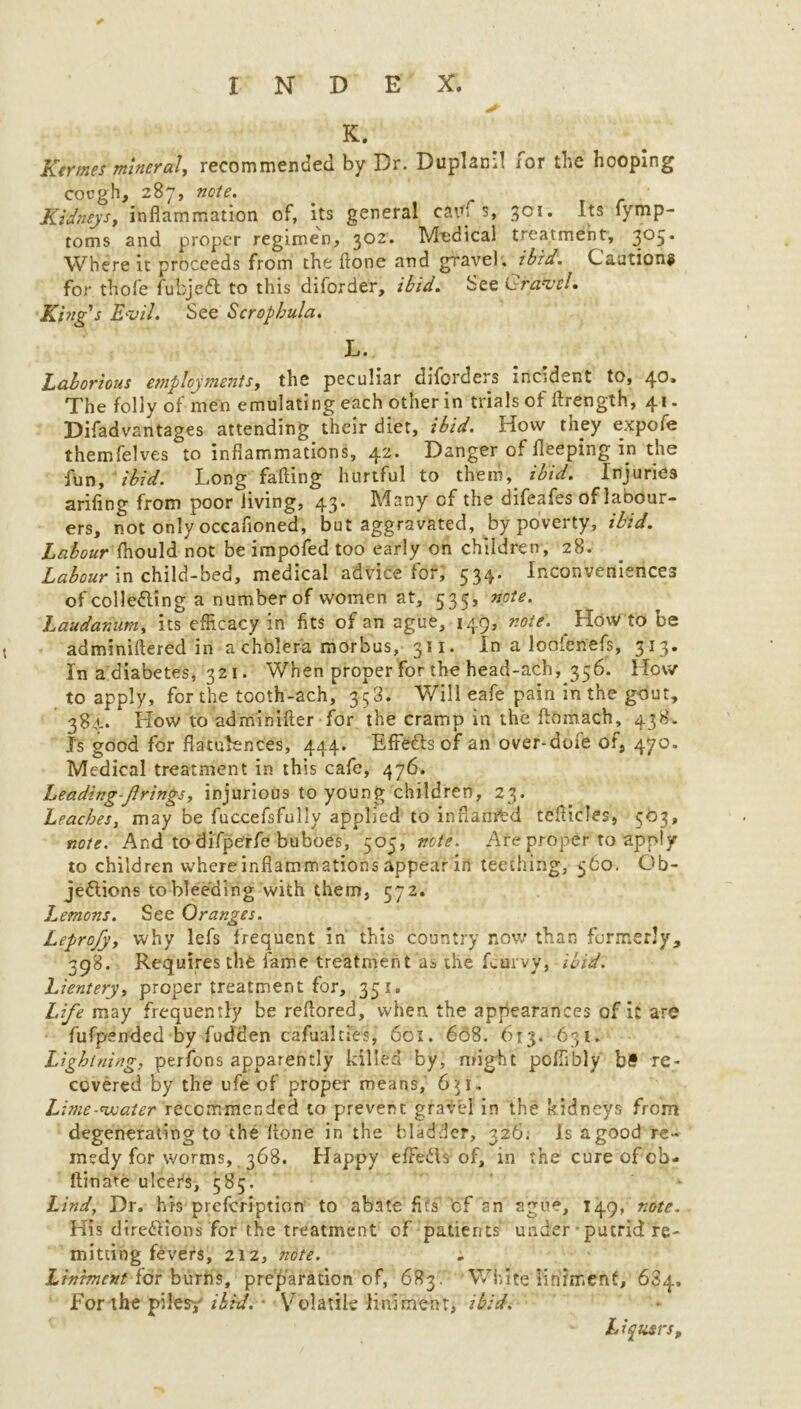 INDEX.
K.
Kermes mineral, recommended by Dr. Duplanil for the hooping
cough, 287, note.
Kidneys, inflammation of, its general caus s, 301. Its ſymp-
toms and proper regimen, 302. Medical treatment, 305.
Where it proceeds from the ſtone and gravel. ibid. Cautions
for thoſe ſubject to this diſorder, ibid. See Gravel.
King's Evil. See Scrophula.
L.
Laborious employments, the peculiar diſorders incident to, 40.
The folly of men emulating each other in trials of ſtrength, 41.
Diſadvantages attending their diet, ibid. How they expoſe
themſelves to inflammations, 42. Danger of ſleeping in the
ſun, ibid. Long faſting hurtful to them, ibid. Injuries
ariſing from poor living, 43. Many of the diſeaſes of labour-
ers, not only occaſioned, but aggravated, by poverty, ibid.
Labour ſhould not be impoſed too early on children, 28.
Labour in child-bed, medical advice for, 534. Inconveniences
of collecting a number of women at, 535, note.
Laudanum, its efficacy in fits of an ague, 149, note. How to be
adminiſtered in a cholera morbus, 311. In a looſeneſs, 313.
In a diabetes, 321. When proper for the head-ach, 356. How
to apply, for the tooth-ach, 358. Will eaſe pain in the gout,
384. How to adminiſter for the cramp in the ſtomach, 438.
Is good for flatulences, 444. Effects of an over-doſe of, 470.
Medical treatment in this caſe, 476.
Leading-ſtrings, injurious to young children, 23.
Leaches, may be ſucceſsfully applied to inflamed teſticles, 503,
note. And to diſperſe buboes, 505, note. Are proper to apply
to children where inflammations appear in teething, 560. Ob-
jections to bleeding with them, 572.
Lemons. See Oranges.
Leproſy, why leſs frequent in this country now than formerly,
398. Requires the ſame treatment as the ſcurvy, ibid.
Lientery, proper treatment for, 351.
Life may frequently be reſtored, when the appearances of it are
ſuſpended by ſudden caſualties, 601. 608. 613. 631.
Lightning, perſons apparently killed by, might poſſibly be re-
covered by the uſe of proper means, 631.
Lime-water recommended to prevent gravel in the kidneys from
degenerating to the ſtone in the bladder, 326. Is a good re-
medy for worms, 368. Happy effects of, in the cure of ob-
ſtinate ulcers, 585.
Lind, Dr. his preſcription to abate fits of an ague, 149, note.
His directions for the treatment of patients under putrid re-
mitting fevers, 212, note.
Liniment for burns, preparation of, 683. White liniment, 684.
For the piles, ibid. Volatile liniment, ibid.
Liquors,